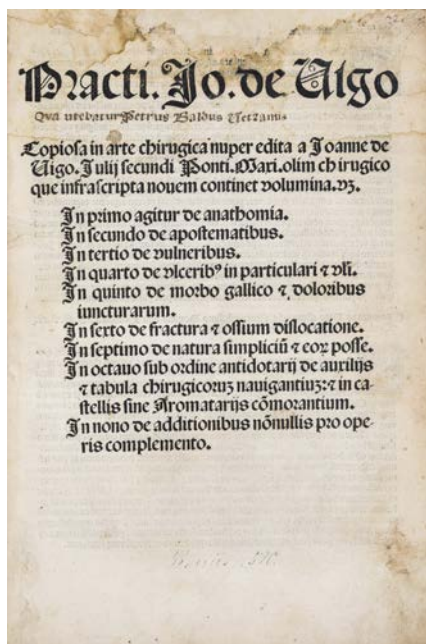 Practi. Jo. de Uigo
Qva utebatur Petrus Baldus
Copiosa in arte chirugica nuper edita a Joanne de
Uigo. Julij secundi Ponti. Maxi. olim chirugico
que infrascripta nouem continet volumina. vꝫ.
In primo agitur de anathomia.
In secundo de apostematibus.
In tertio de vulneribus.
In quarto de vlceribꝰ in particulari ⁊ vl̄i.
In quinto de morbo gallico ⁊ doloribus
iuncturarum.
In sexto de fractura ⁊ ossium dislocatione.
In septimo de natura simpliciū ⁊ eoꝝ posse.
In octauo sub ordine antidotarij de auxilijs
⁊ tabula chirugicoruꝫ nauigantiuꝫ: ⁊ in ca-
stellis sine Aromatarijs cōmorantium.
In nono de additionibus nōnullis pro ope-
ris complemento.